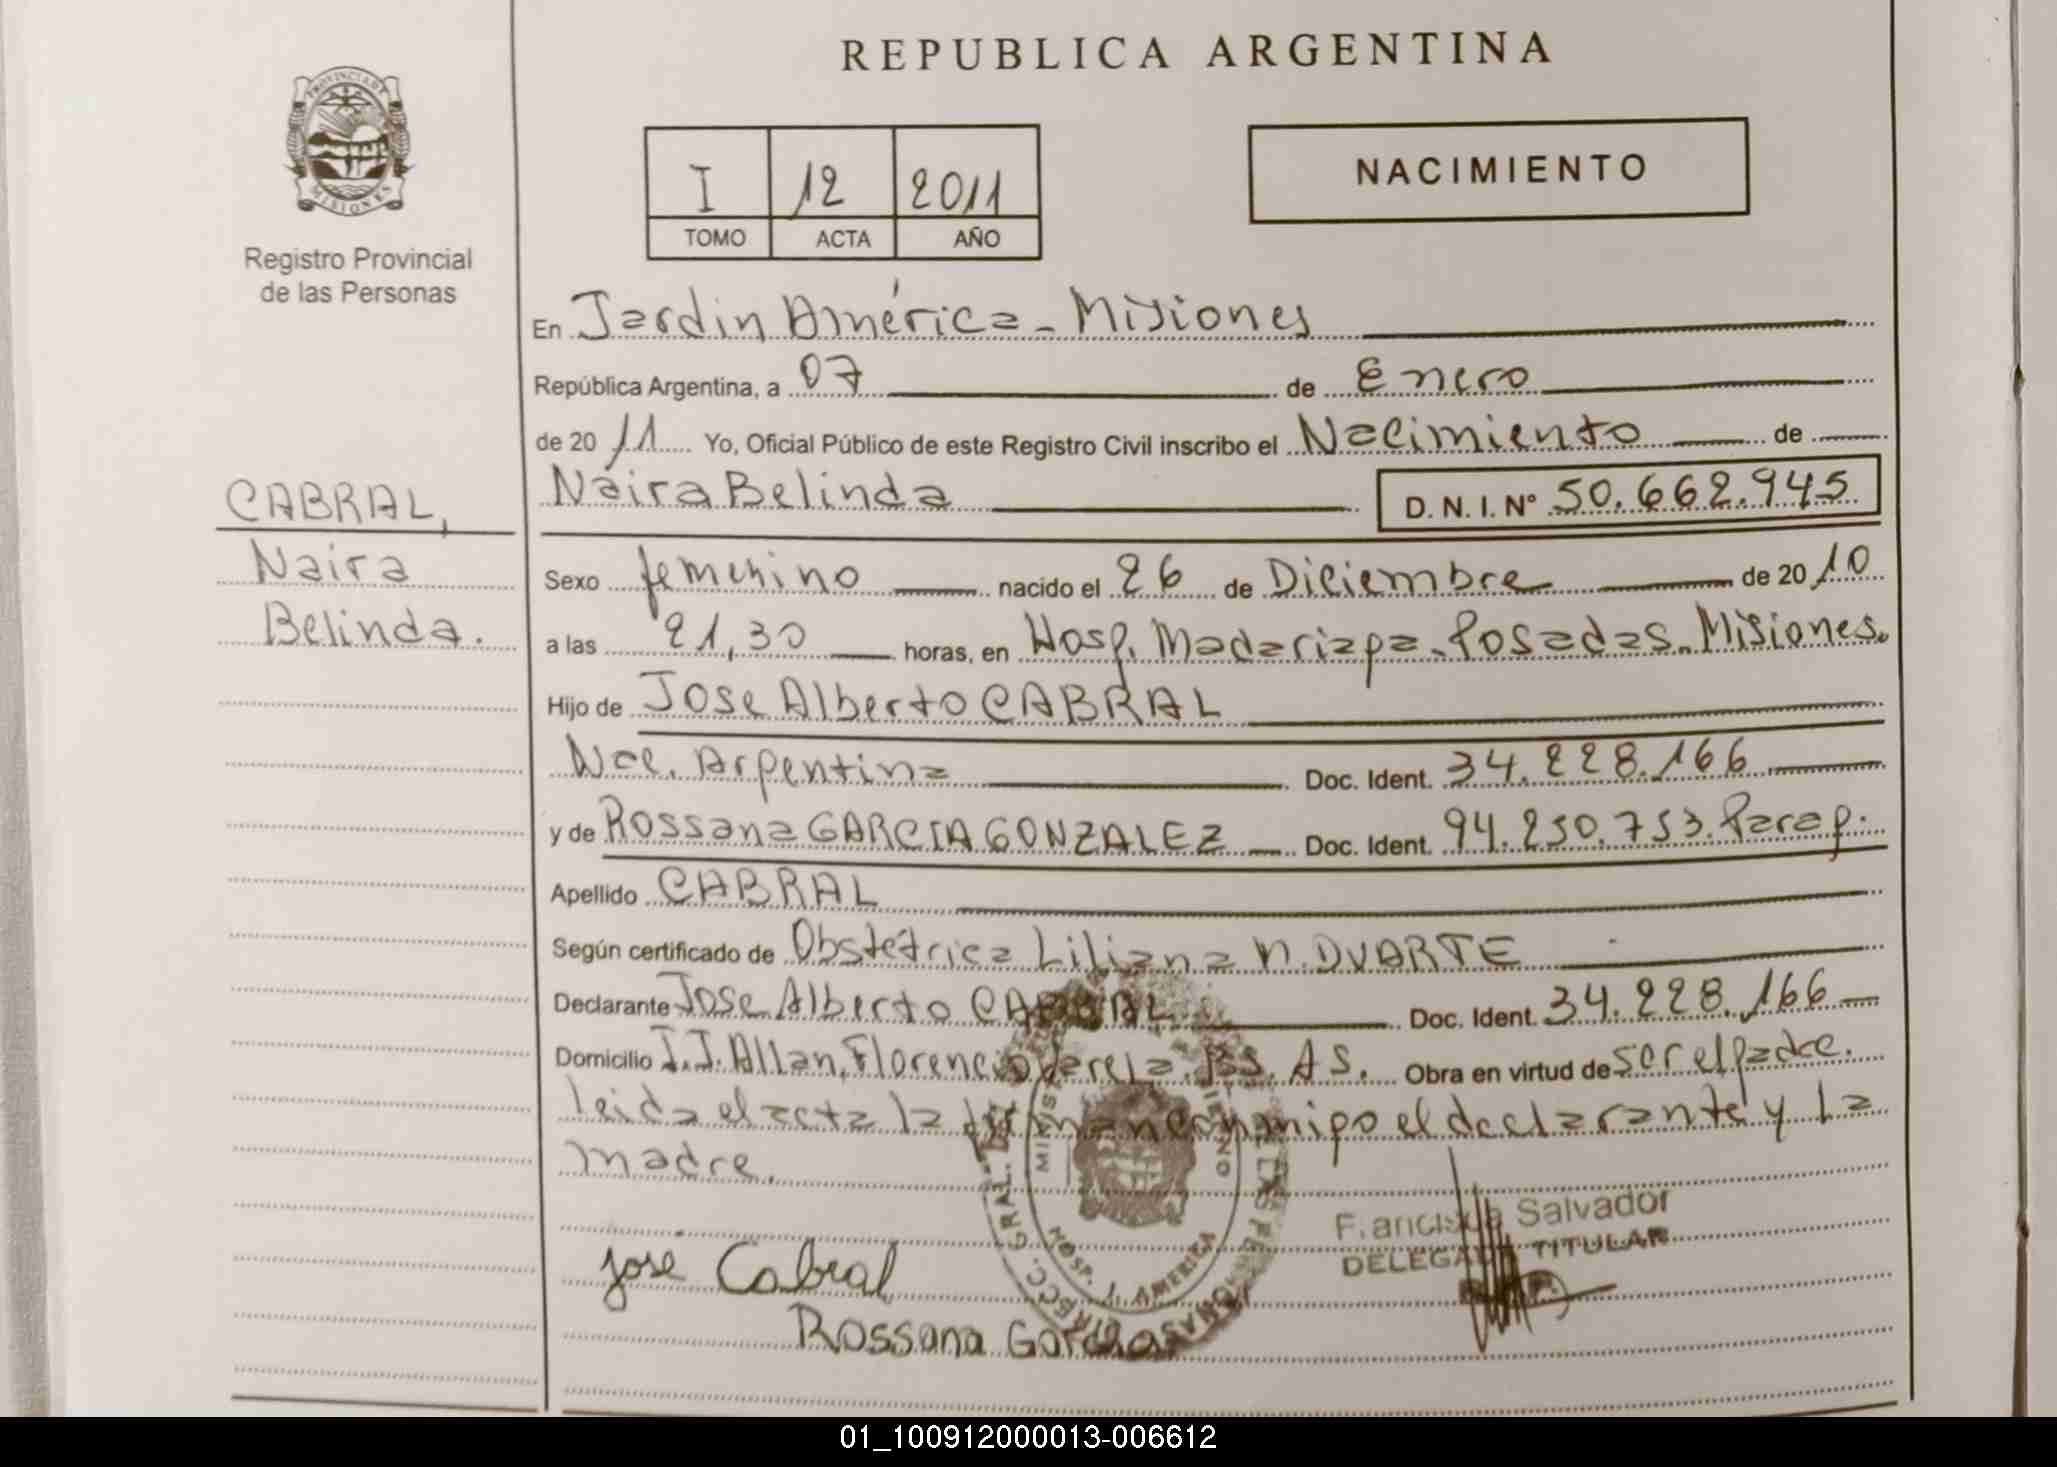 REPUBLICA ARGENTINA
PROVINCIA DE
MISIONES
Registro Provincial
de las Personas
I 12 2011
TOMO ACTA AÑO
NACIMIENTO
En Jardin América - Misiones
República Argentina, a 07 de Enero
de 2011 Yo, Oficial Público de este Registro Civil inscribo el Nacimiento de
Naira Belinda D. N. I. Nº 50.662.945
CABRAL,
Naira
Belinda.
Sexo femenino nacido el 26 de Diciembre de 2010
a las 21,30 horas, en Hosp. Madariaga - Posadas - Misiones.
Hijo de Jose Alberto CABRAL
Nac. Argentina Doc. Ident. 34.228.166
y de Rossana GARCIA GONZALEZ Doc. Ident. 94.250.753. Parag.
Apellido CABRAL
Según certificado de Obstétrica Liliana N. DUARTE
Declarante Jose Alberto CABRAL Doc. Ident. 34.228.166
Domicilio J.J. Allan, Florencio Varela. Bs. As. Obra en virtud de ser el padre.
leida el acta la firman conmigo el declarante y la
madre.
HOSP. J. AMERICA
Francisco Salvador
DELEGADO TITULAR
José Cabral
Rossana Garcia
01_100912000013-006612